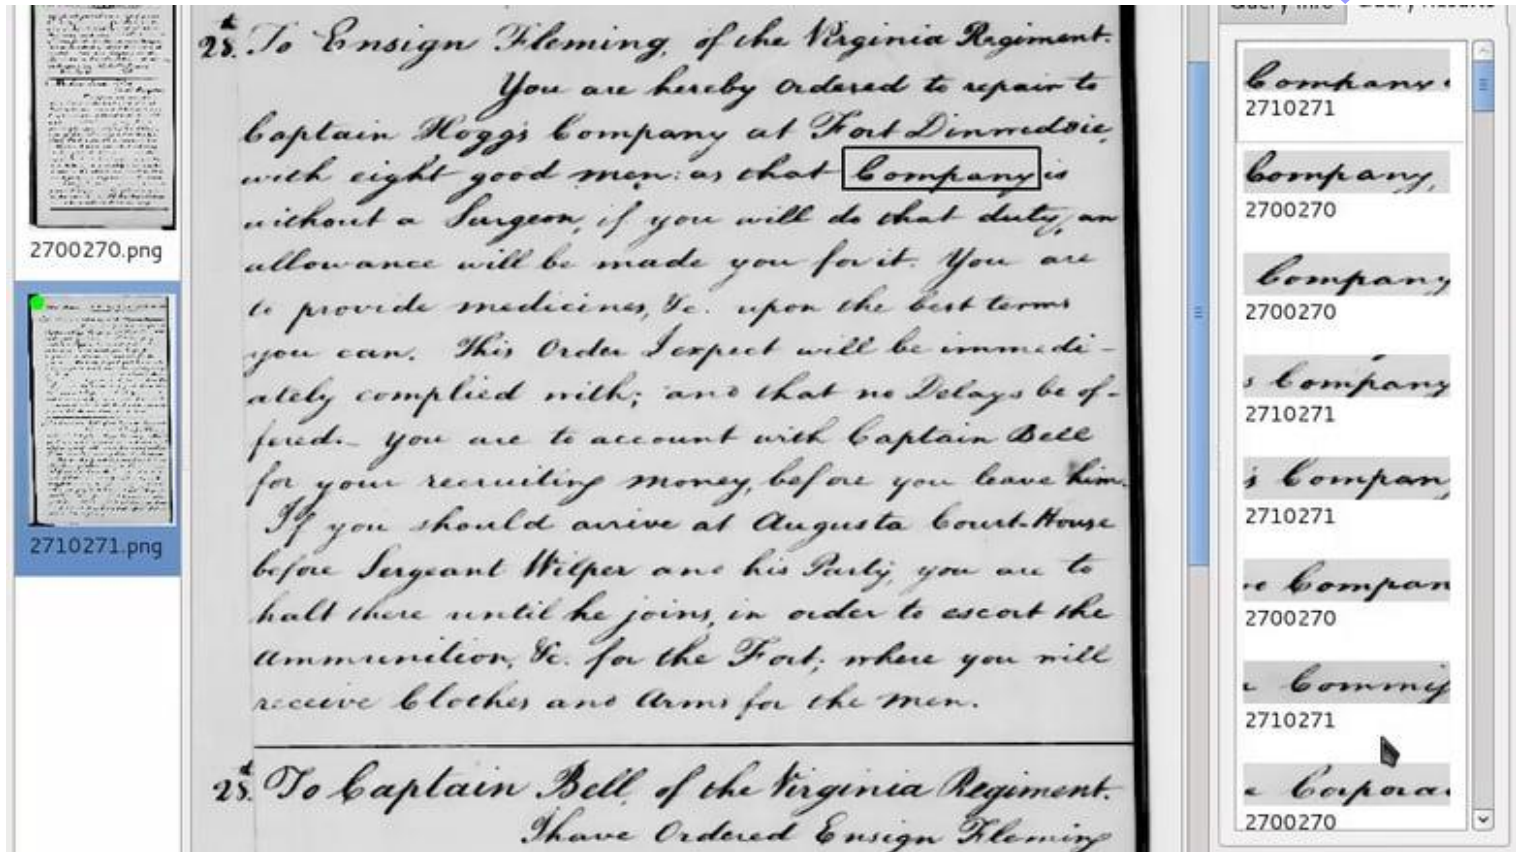 2700270.png
2710271.png
28. To Ensign Fleming, of the Virginia Regiment.
You are hereby ordered to repair to
Captain Hogg's Company at Fort Dinwiddie,
with eight good men: as that Company is
without a Surgeon, if you will do that duty, an
allowance will be made you for it. You are
to provide medicines, &c. upon the best terms
you can. This Order I expect will be immedi-
ately complied with; and that no Delays be of-
fered. - You are to account with Captain Bell
for your recruiting money, before you leave him.
If you should arrive at Augusta Court-House
before Sergeant Wilper and his Party, you are to
halt there until he joins, in order to escort the
Ammunition, &c. for the Fort; where you will
receive Clothes and Arms for the Men.
28. To Captain Bell, of the Virginia Regiment.
I have Ordered Ensign Fleming
Query Info
Query Results
Company
2710271
Company,
2700270
Company
2700270
s Company
2710271
s Compan
2710271
e Compan
2700270
Commis
2710271
e Corpora
2700270